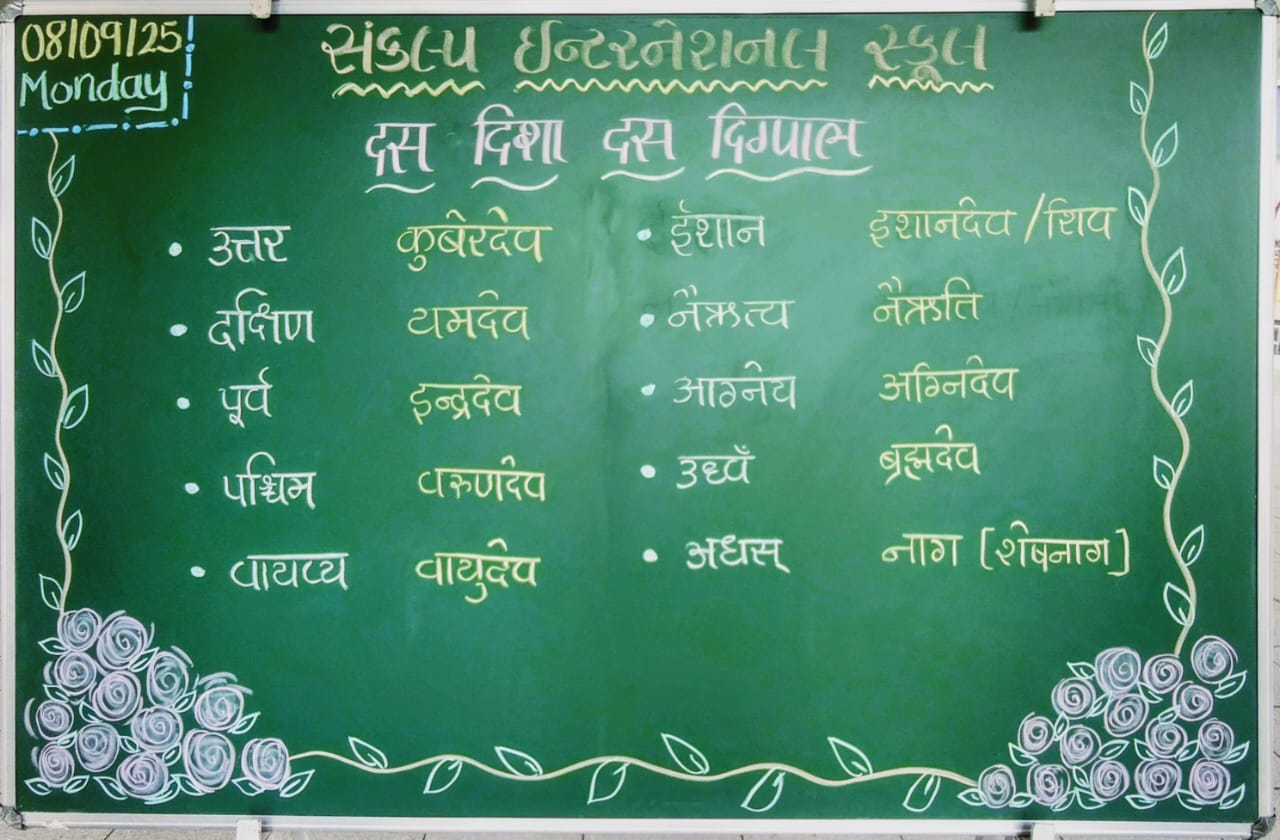 08/09/25
Monday
સંકલ્પ ઈન્ટરનેશનલ સ્કૂલ
दस दिशा दस दिग्पाल
• उत्तर कुबेरदेव
• दक्षिण यमदेव
• पूर्व इन्द्रदेव
• पश्चिम वरुणदेव
• वायव्य वायुदेव
• ईशान इशानदेव /शिव
• नैऋत्य नैऋति
• आग्नेय अग्निदेव
• उध्वँ ब्रह्मदेव
• अधस् नाग [शेषनाग]